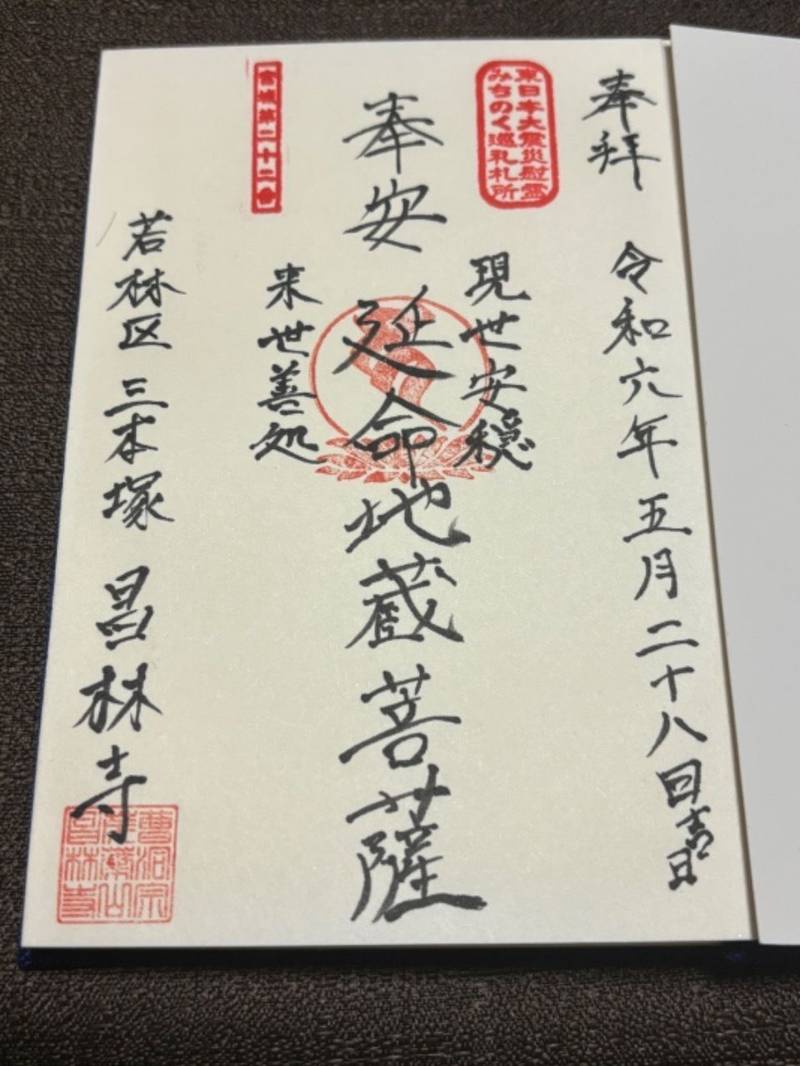 奉拝
令和六年五月二十八日吉日
東日本大震災慰霊
みちのく巡礼札所
現世安穏
奉安 延命地蔵菩薩
来世善処
宮城第二十二番
若林区 三本塚 昌林寺
曹洞宗
昌林寺